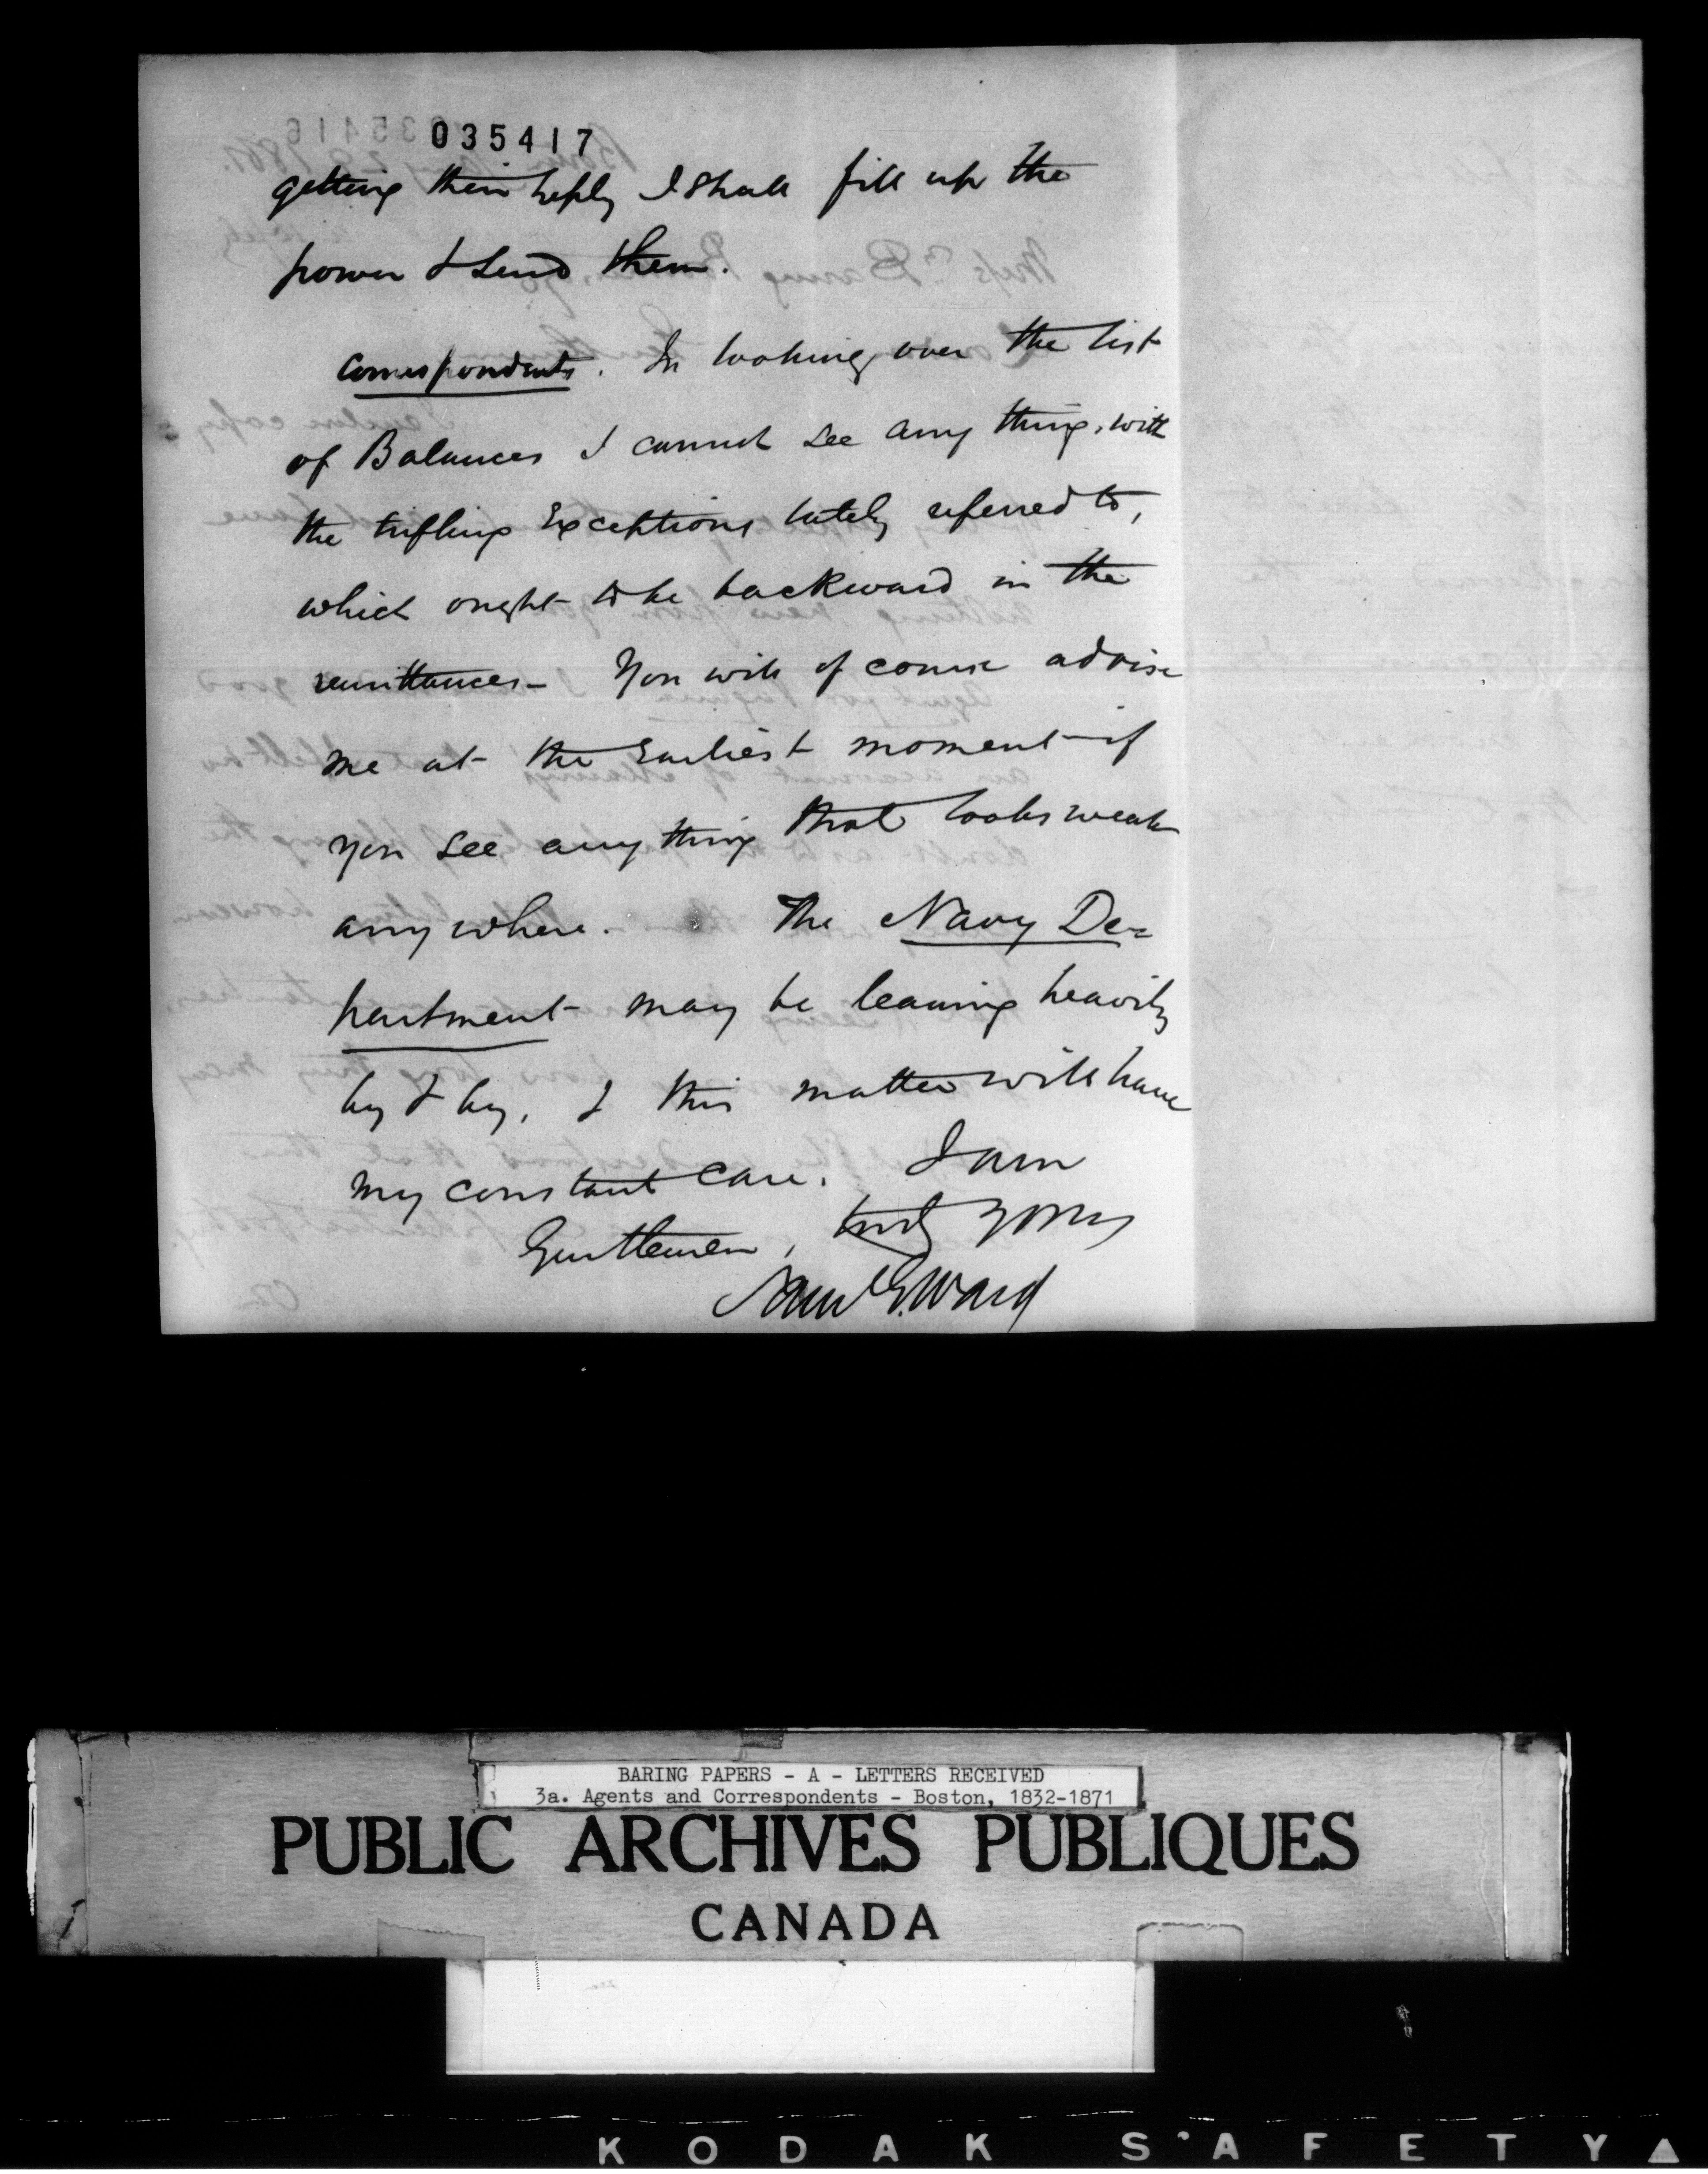 035417
getting their reply I shall fill up the
power & send them.
Correspondents. In looking over the list
of Balances I cannot see any thing, with
the trifling exceptions lately referred to,
which ought to be backward in the
remittances - You will of course advise
me at the Earliest moment if
you see any thing that looks weak
any where. The Navy De=
partment may be leaning heavily
by & by, & this matter will have
my constant care. I am
Gentlemen, truly yours
Sam G. Ward
BARING PAPERS - A - LETTERS RECEIVED
3a. Agents and Correspondents - Boston, 1832-1871
PUBLIC ARCHIVES PUBLIQUES
CANADA
KODAK SAFETY